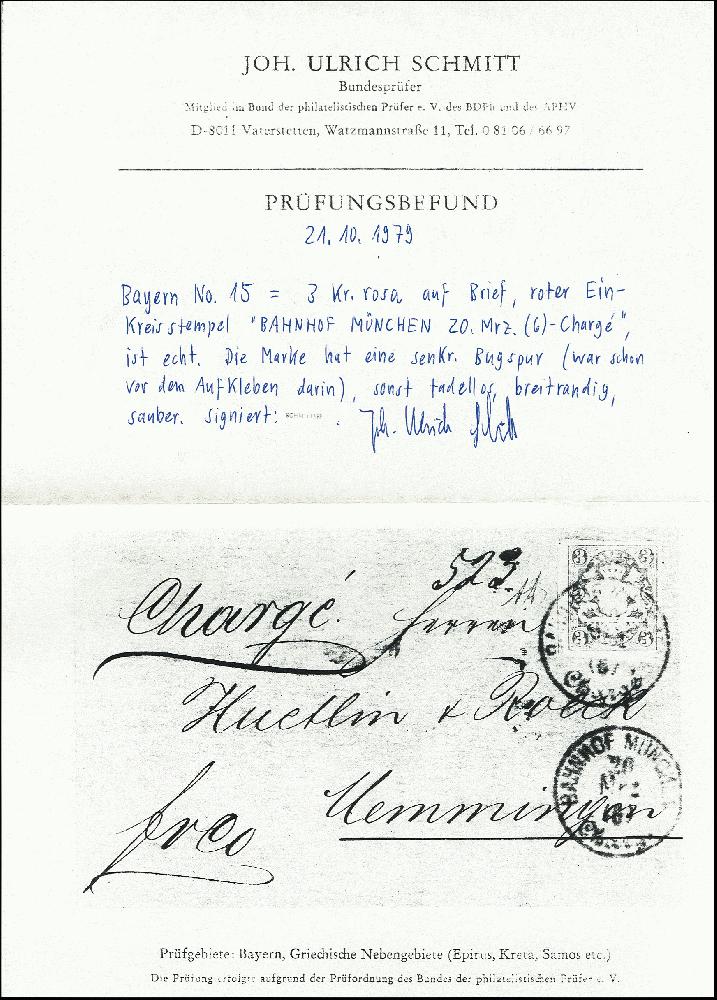 JOH. ULRICH SCHMITT
Bundesprüfer
Mitglied im Bund der philatelistischen Prüfer e. V. des BDPh und des APHV
D-8011 Vaterstetten, Watzmannstraße 11, Tel. 0 81 06 / 66 97
PRÜFUNGSBEFUND
21. 10. 1979
Bayern No. 15 = 3 Kr. rosa auf Brief, roter Ein-
Kreisstempel "BAHNHOF MÜNCHEN 20. Mrz. (6)-Chargé",
ist echt. Die Marke hat eine senkr. Bugspur (war schon
vor dem Aufkleben darin), sonst tadellos, breitrandig,
sauber. signiert: . Joh. Ulrich
523
3 3
Chargé. Herren
3 3
(6)
Huetlin &
BAHNHOF MÜNCHEN
20
Memmingen
frco
Prüfgebiete: Bayern, Griechische Nebengebiete (Epirus, Kreta, Samos etc.)
Die Prüfung erfolgte aufgrund der Prüfordnung des Bundes der philatelistischen Prüfer e. V.